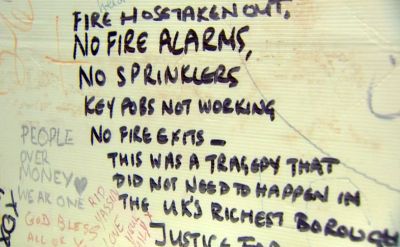 FIRE HOSE TAKEN OUT.
NO FIRE ALARMS,
NO SPRINKLERS
KEY FOBS NOT WORKING
NO FIRE EXITS –
THIS WAS A TRAGEDY THAT
DID NOT NEED TO HAPPEN IN
THE UK'S RICHEST BOROUGH
JUSTICE FOR
PEOPLE
OVER
MONEY
WE AR ONE
GOD BLESS
ALL OF
RIP
LOVE